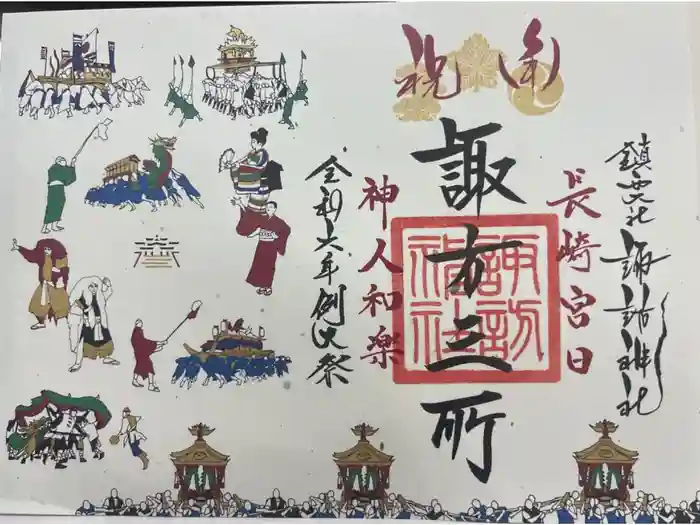 鎮西大社 諏訪神社
長崎宮日
奉祝
諏方三所
諏訪神社
神人和楽
令和六年例大祭